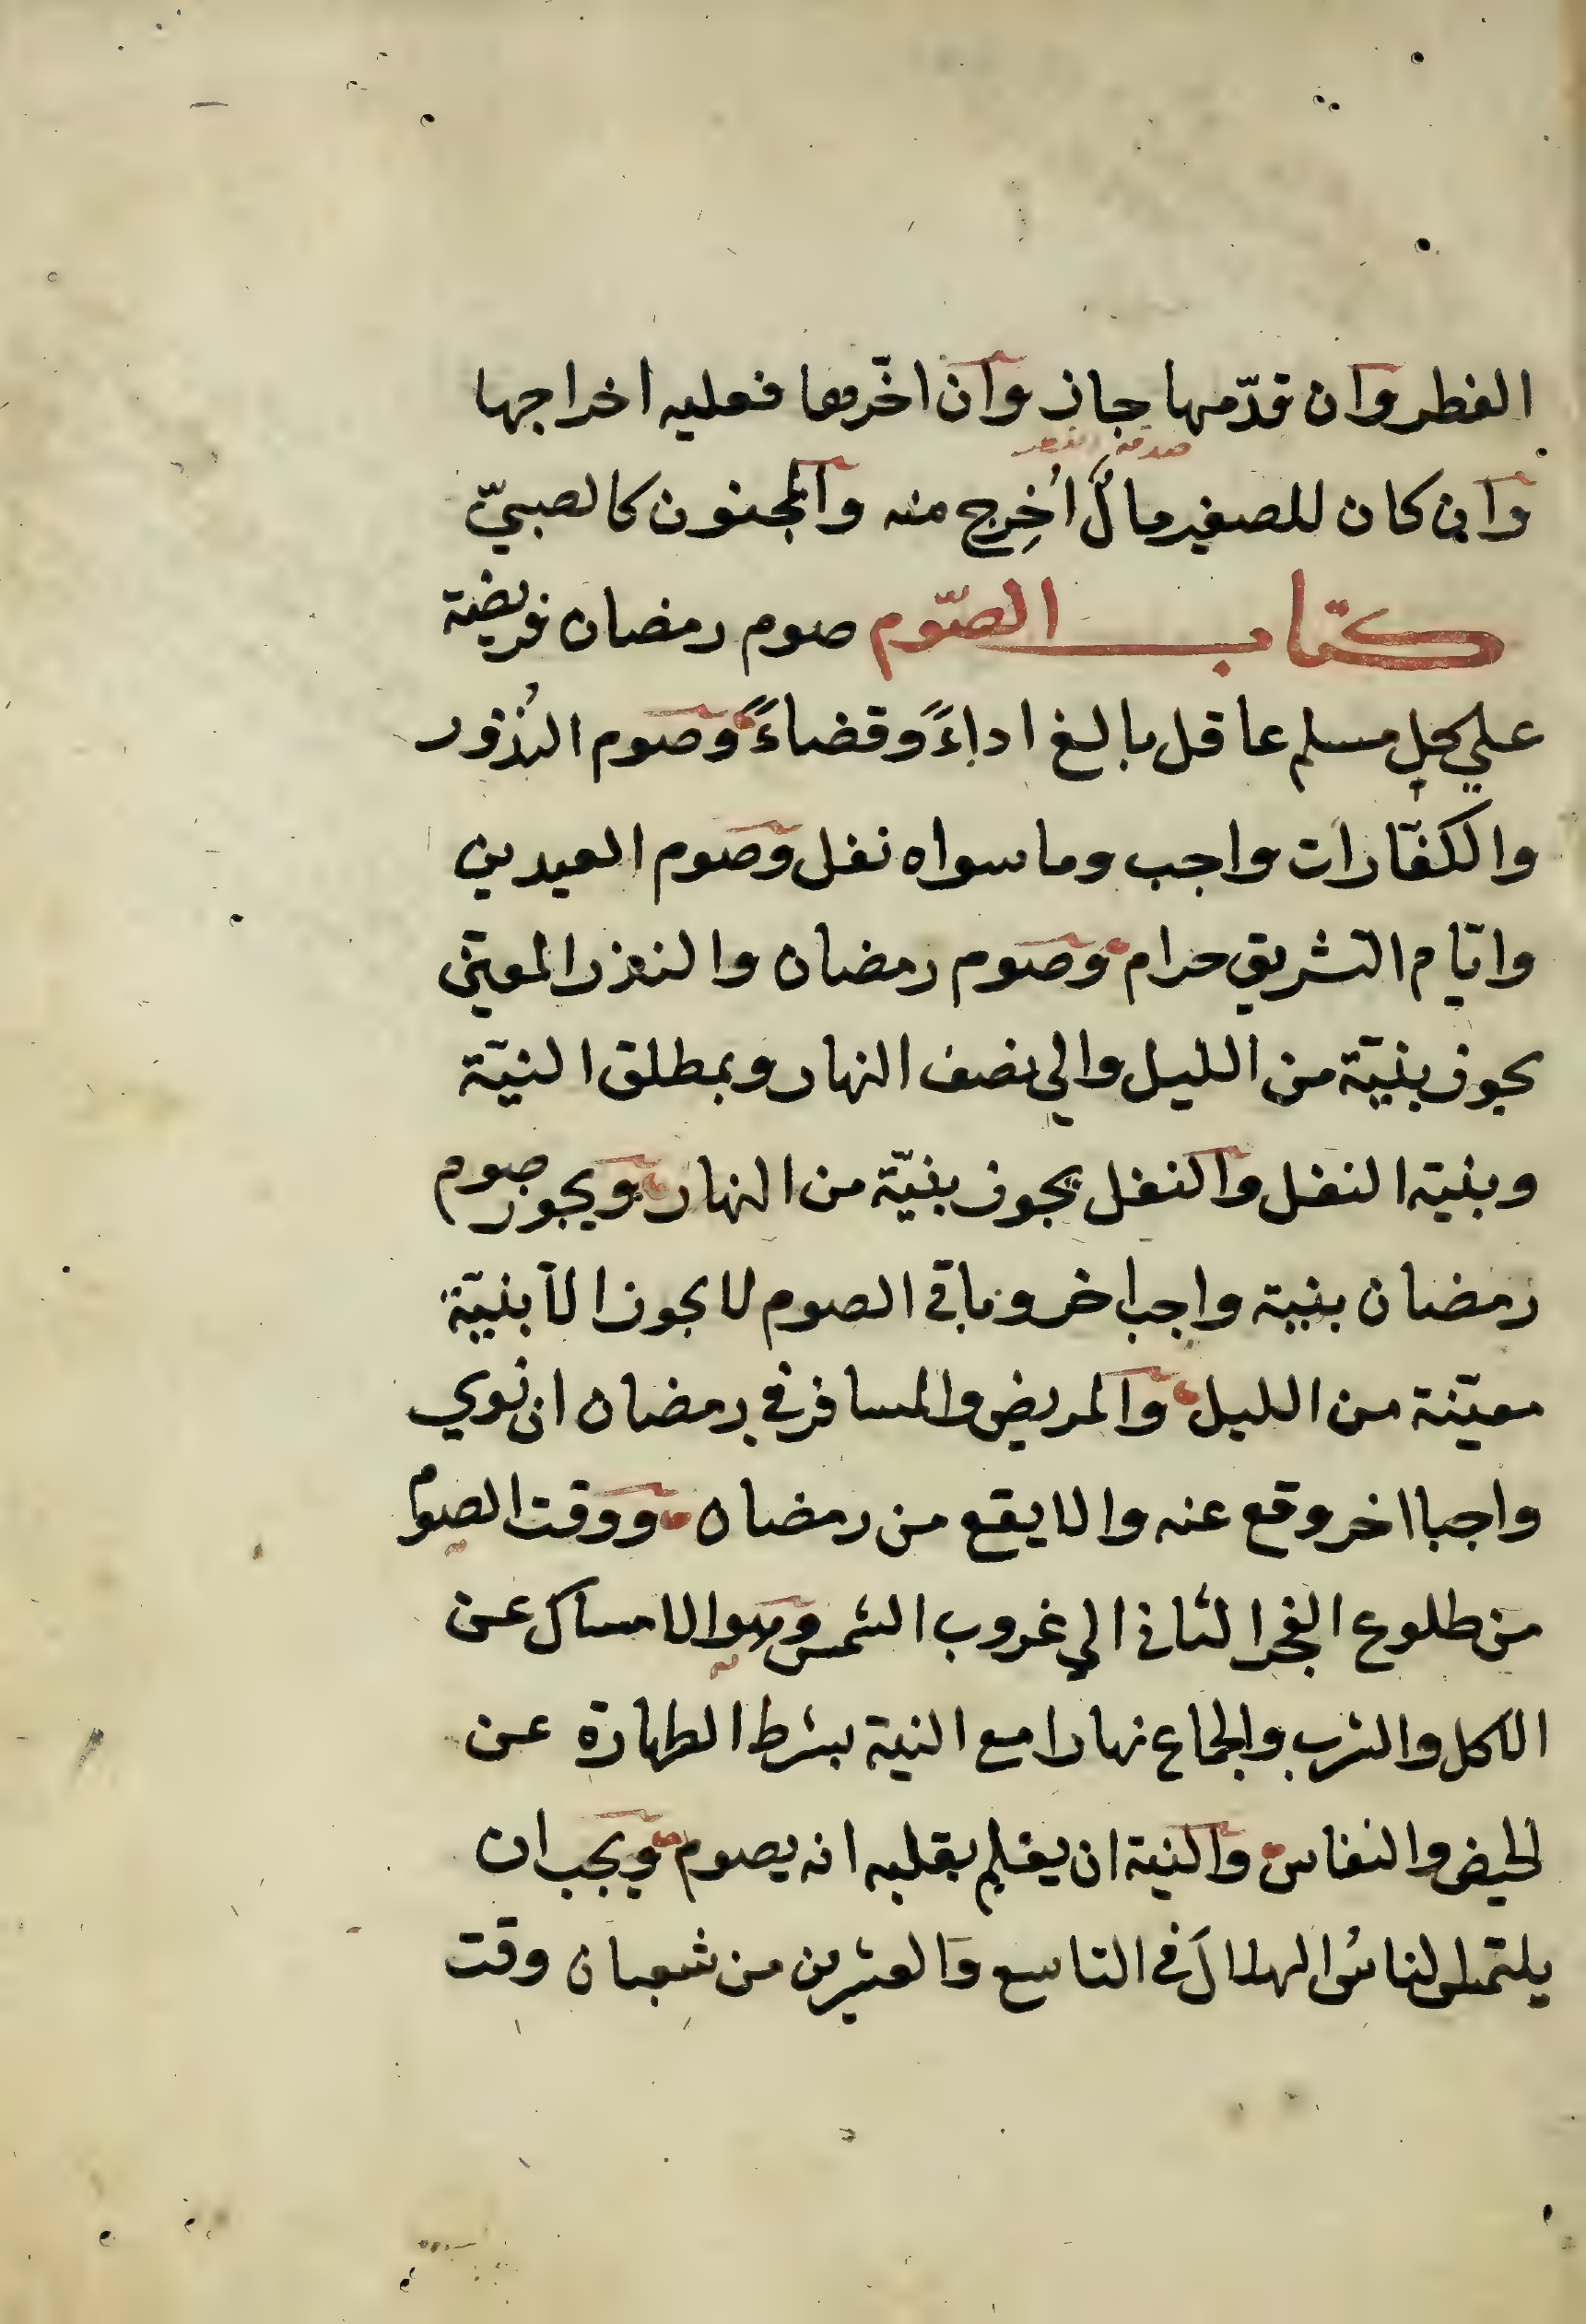 الفطر وان قدّمها جاز وان اخّرها فعليه اخراجها
صدقة الفطر
وان كان للصغير مالٌ اُخرِج منه والمجنون كالصبيّ
كتاب الصّوم صوم رمضان فريضة
علي كل مسلم عاقل بالغ اداءً وقضاءً وصوم النُذور
والكفّارات واجب وما سواه نفل وصوم العيدين
وايّام التشريق حرام وصوم رمضان والنذر المعيّن
يجوز بنيّة من الليل والي نصف النهار وبمطلق النيّة
وبنية النفل والنفل يجوز بنيّة من النهار ويجوز صوم
رمضان بنية واجب اخر وباقي الصوم لا يجوز الّا بنيّة
معيّنة من الليل والمريض والمسافر في رمضان ان نوي
واجبا اخر وقع عنه والا يقع من رمضان ووقت الصوم
من طلوع الفجر الثاني الي غروب الشمس وهو الامساك عن
الاكل والشرب والجماع نهارا مع النية بشرط الطهارة عن
الحيض والنفاس والنية ان يعلم بقلبه انه يصوم ويجب ان
يلتمس الناسُ الهلالَ في التاسع والعشرين من شعبان وقت